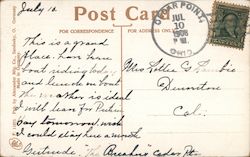 July 10
Post Card
FOR CORRESPONDENCE
FOR ADDRESS ONLY
CEDAR POINT,
JUL
10
1908
OHIO
This is a grand
place. have been
boat riding today
and lunch on boat
the weather is ideal
I will leave for Buffalo
day tomorrow, wish
I could stay here a week
Gertrude. "The Breakers" Cedar Pt.
Mrs
Dunnton
Cal.